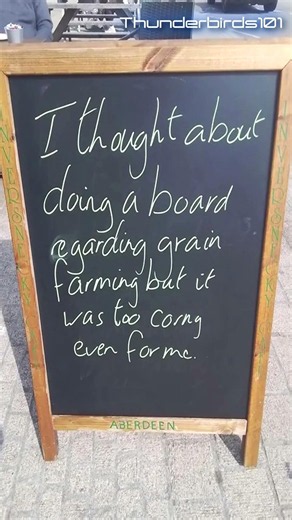 Thunderbirds101
I thought about
doing a board
regarding grain
farming but it
was too corny
even for me.
ABERDEEN